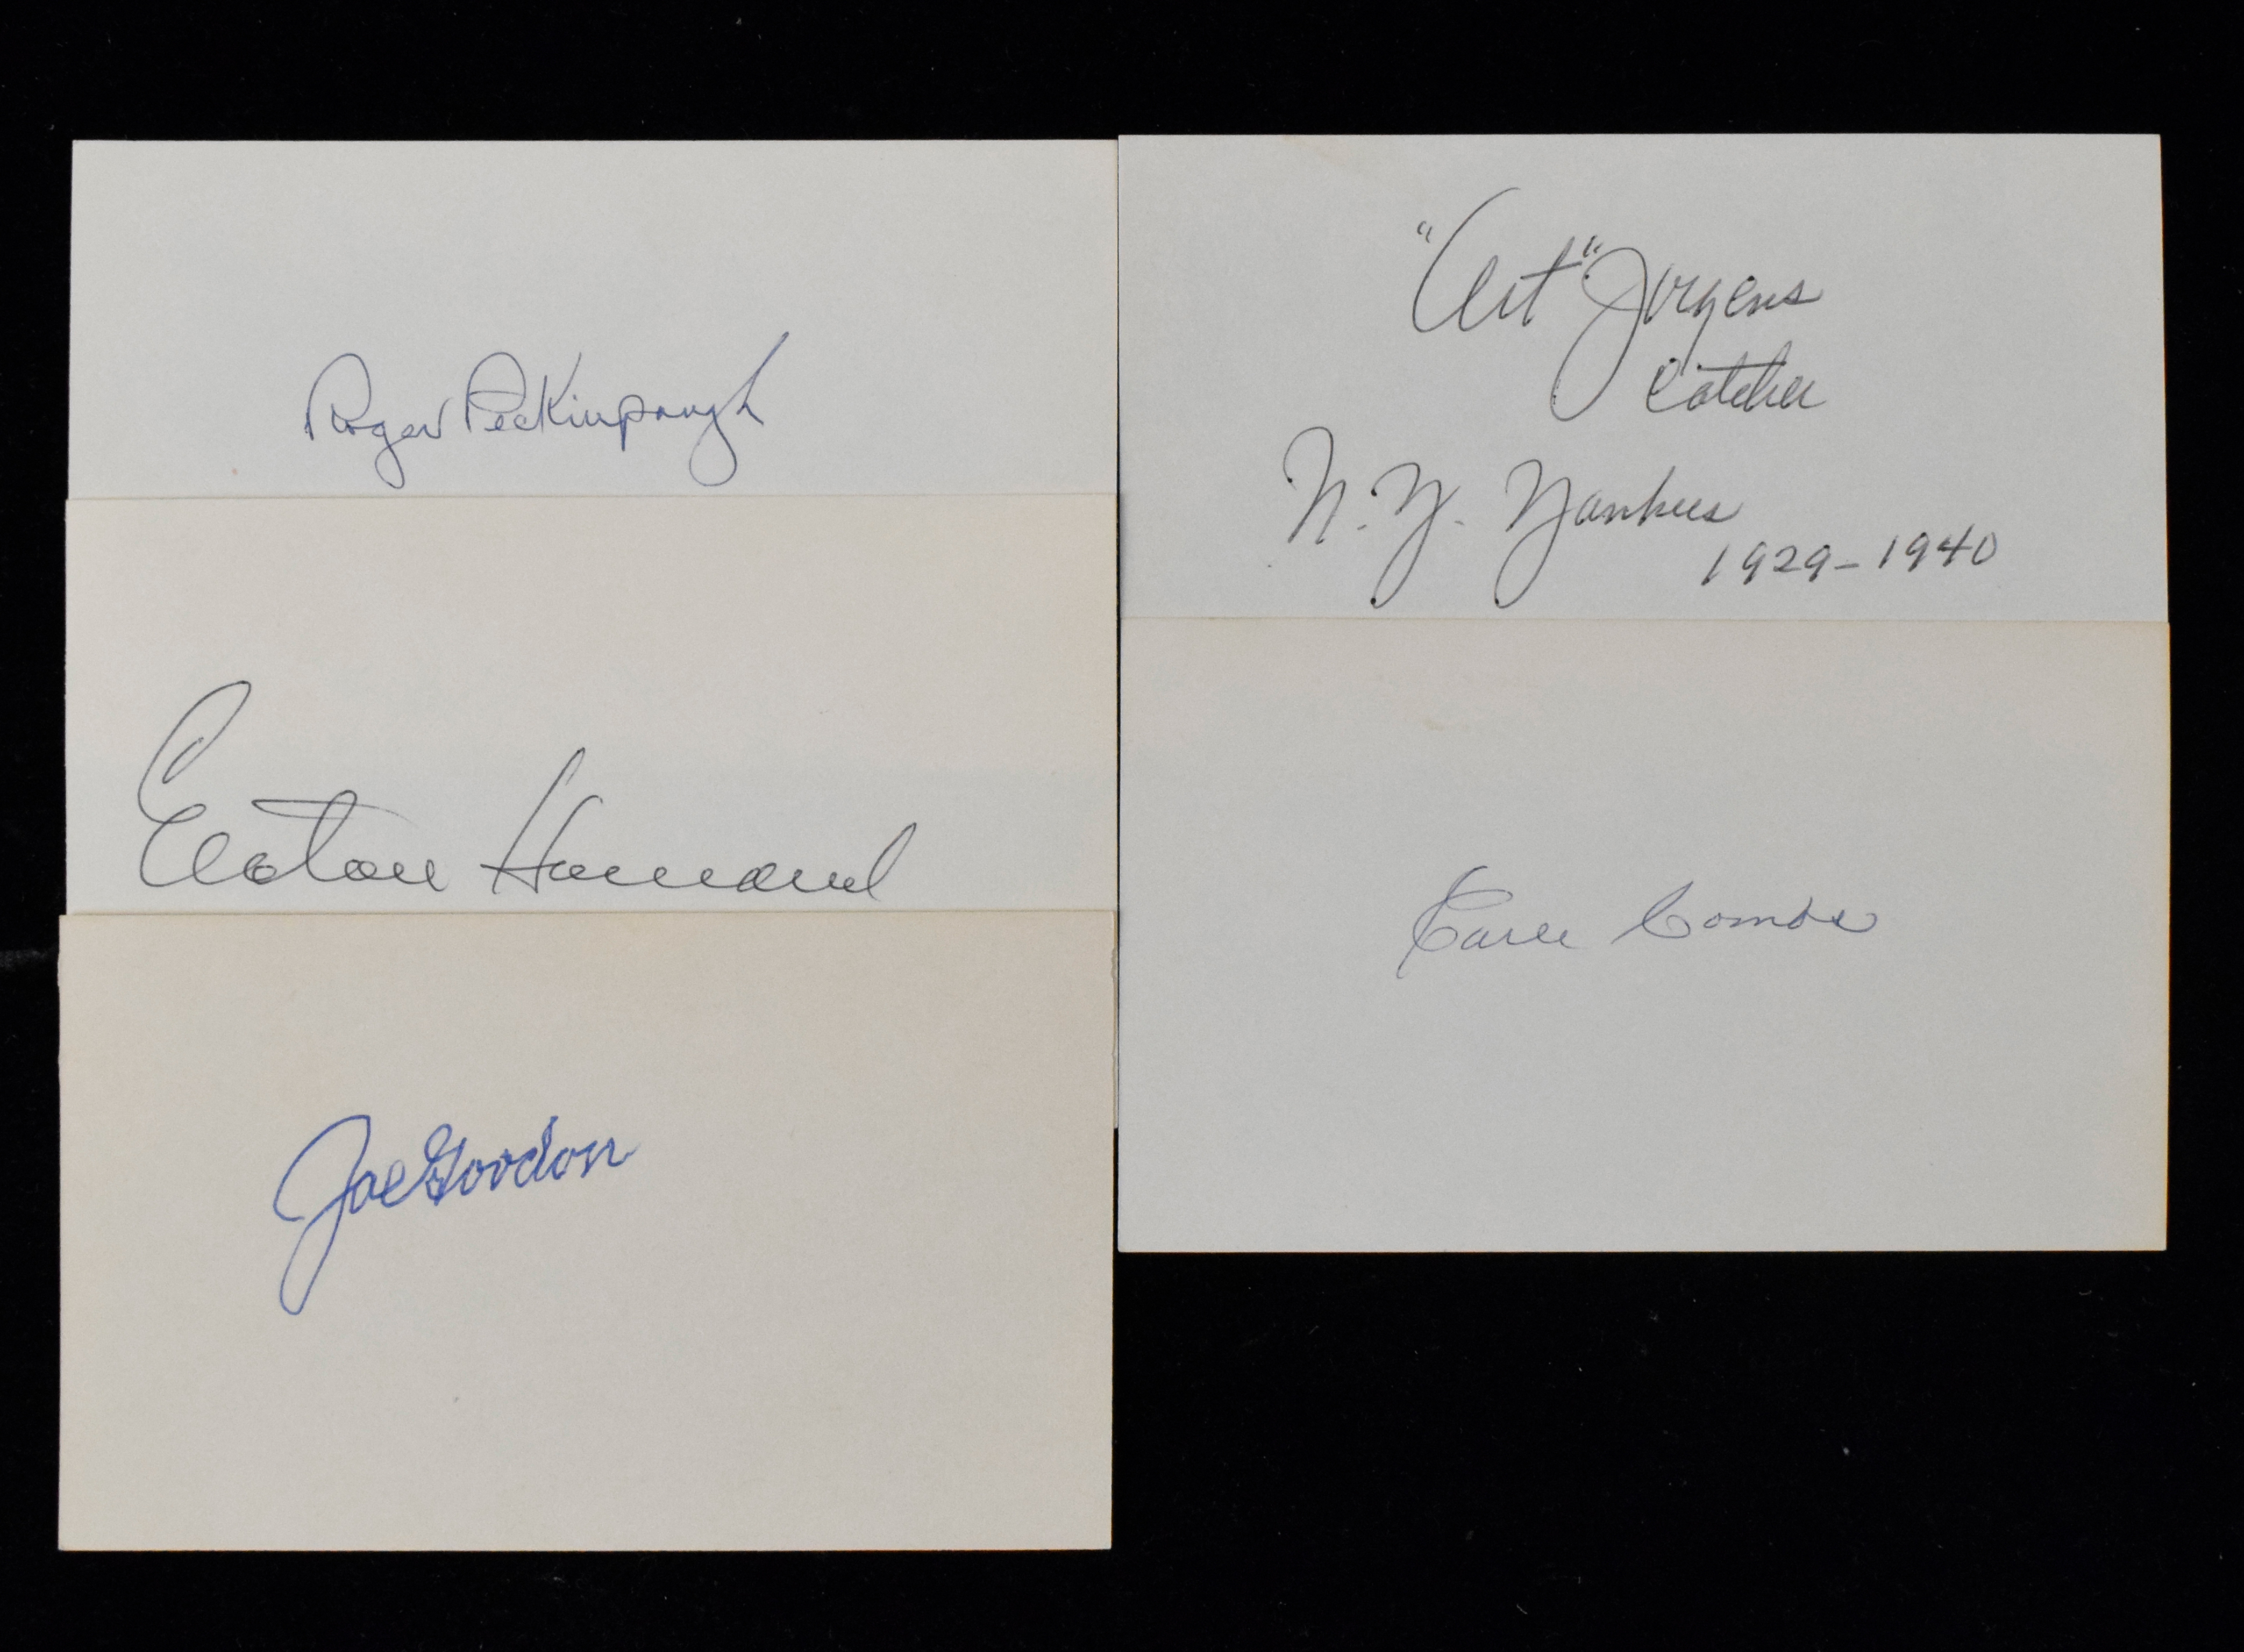 Roger Peckinpaugh
Elston Howard
Joe Gordon
"Art" Jorgens
Catcher
N.Y. Yankees
1929-1940
Earle Combs